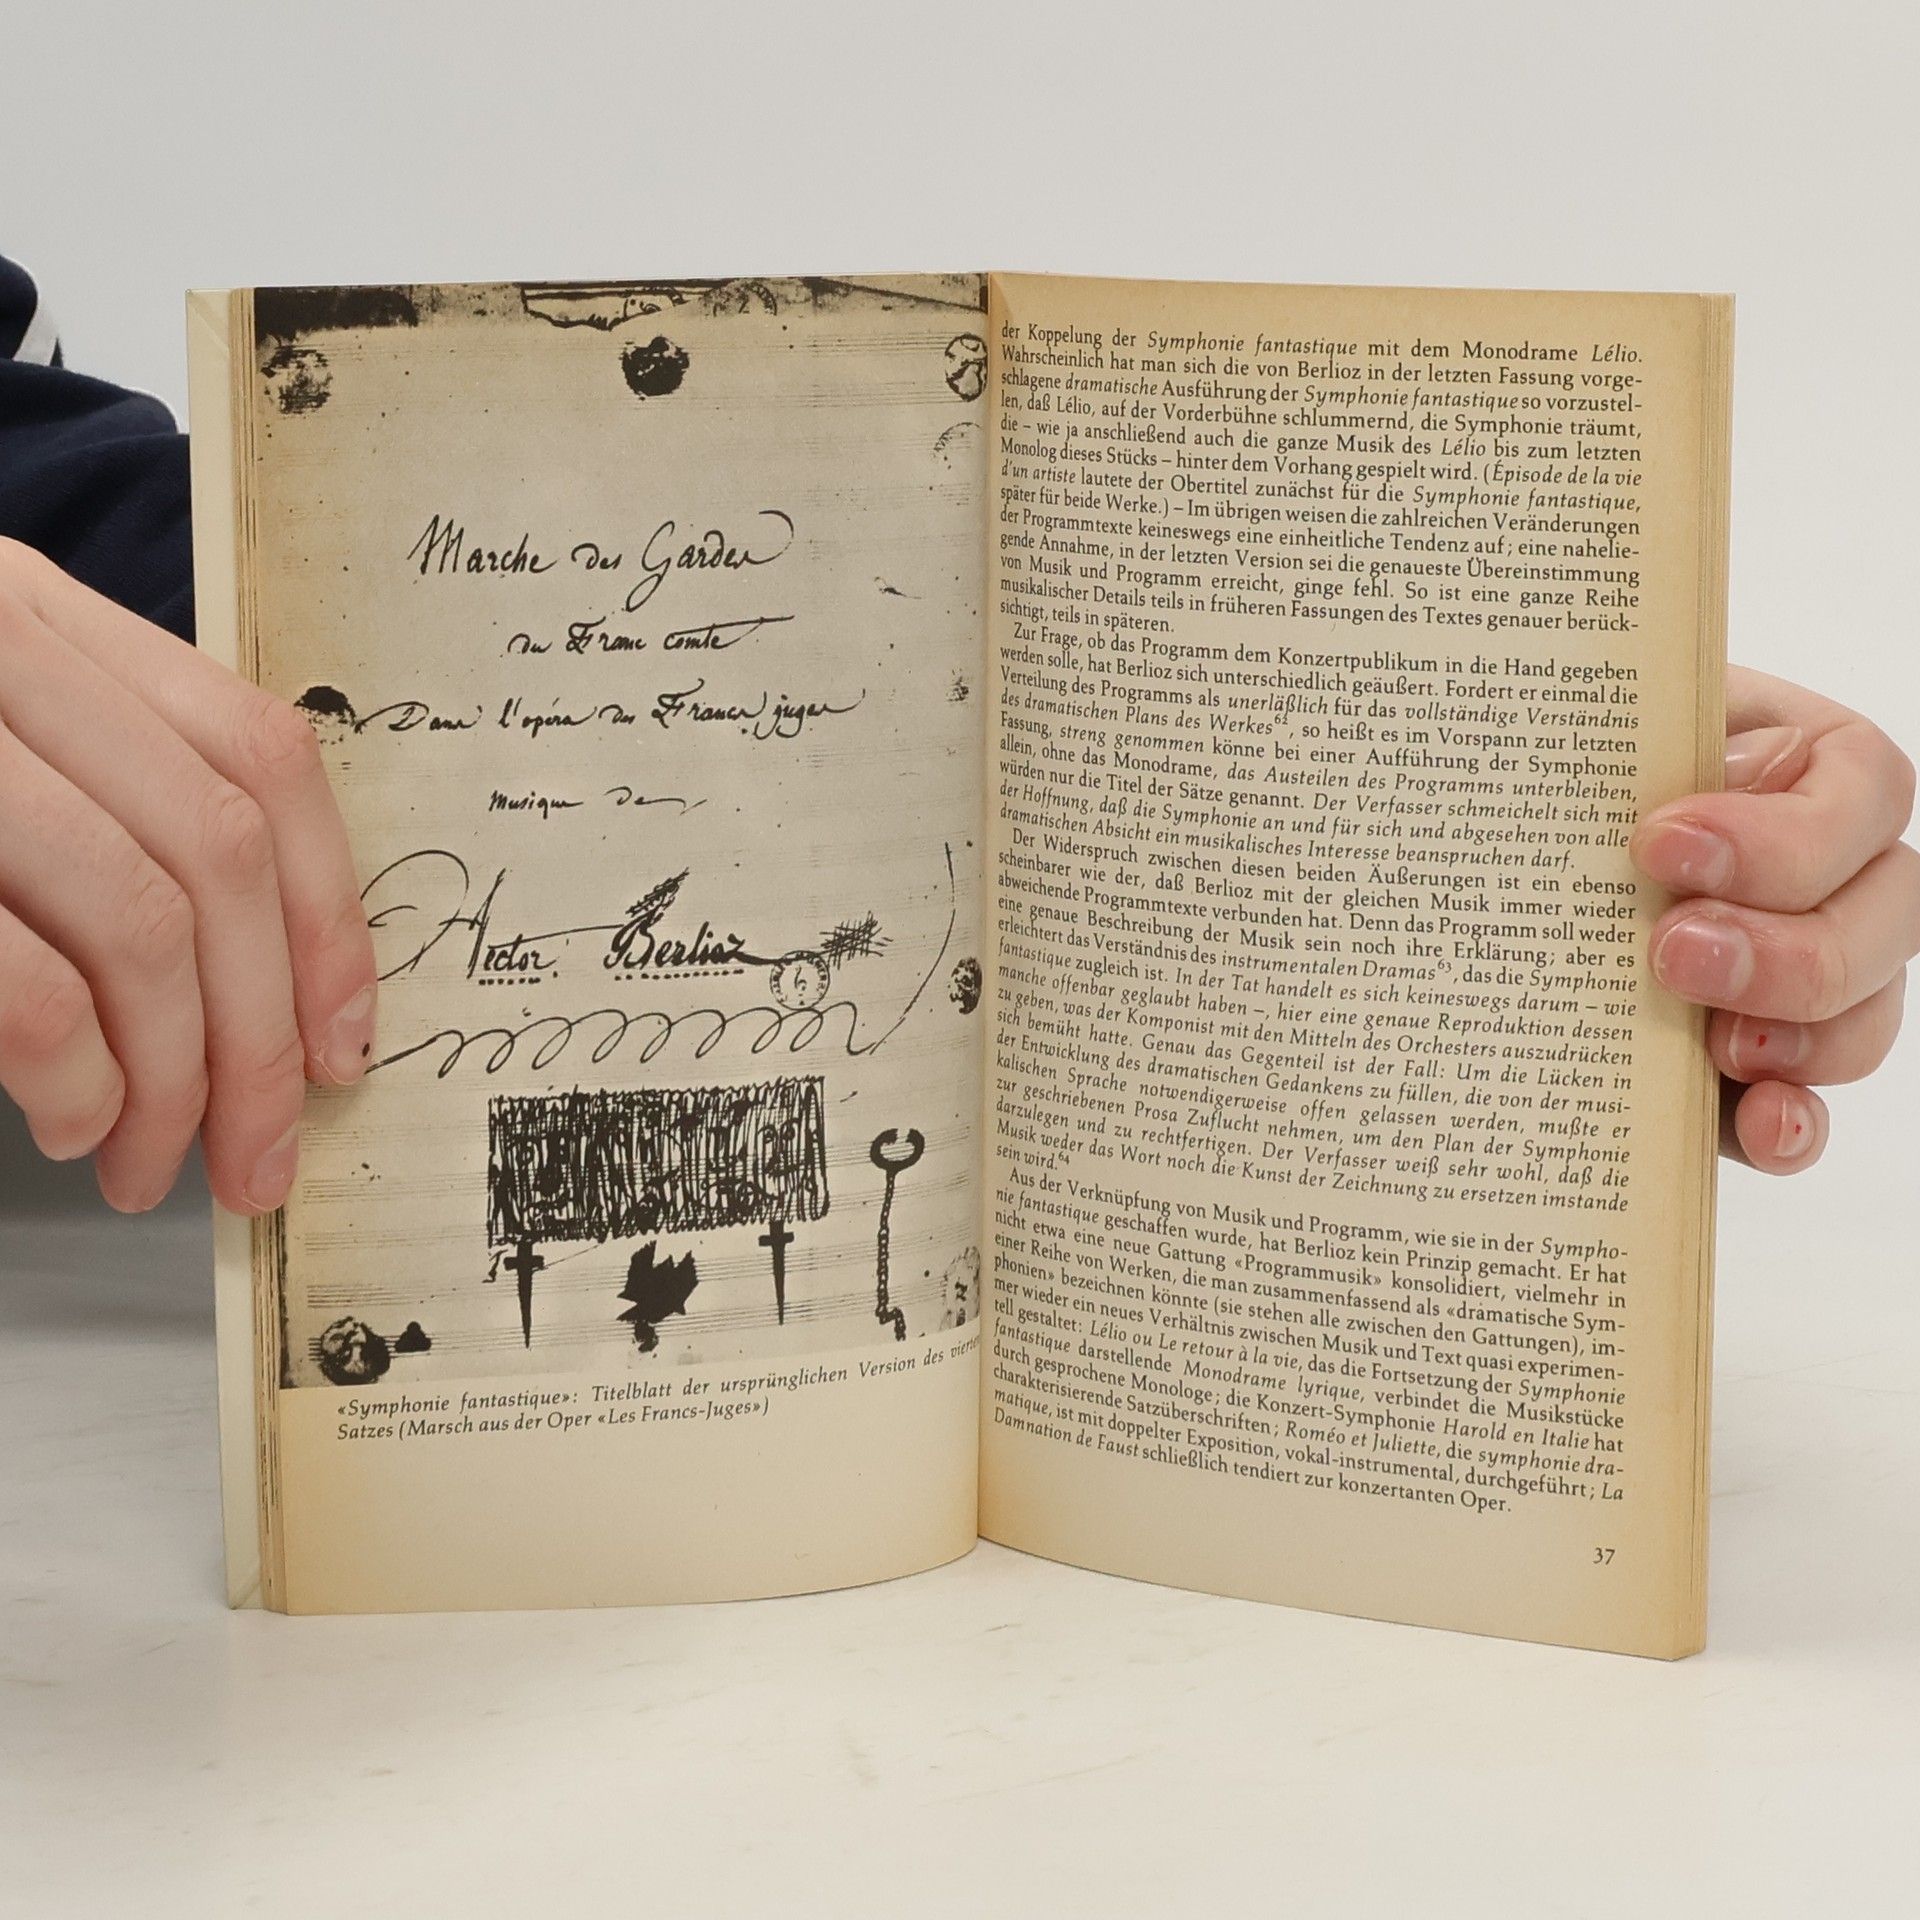 Marche des Gardes
du Franc comte
Dans l'opéra des Francs juges
Musique de
Hector Berlioz
«Symphonie fantastique»: Titelblatt der ursprünglichen Version des vierten
Satzes (Marsch aus der Oper «Les Francs-Juges»)
der Koppelung der Symphonie fantastique mit dem Monodrame Lélio.
Wahrscheinlich hat man sich die von Berlioz in der letzten Fassung vorge-
schlagene dramatische Ausführung der Symphonie fantastique so vorzustel-
len, daß Lélio, auf der Vorderbühne schlummernd, die Symphonie träumt,
die – wie ja anschließend auch die ganze Musik des Lélio bis zum letzten
Monolog dieses Stücks – hinter dem Vorhang gespielt wird. (Épisode de la vie
d'un artiste lautete der Obertitel zunächst für die Symphonie fantastique,
später für beide Werke.) – Im übrigen weisen die zahlreichen Veränderungen
der Programmtexte keineswegs eine einheitliche Tendenz auf; eine nahelie-
gende Annahme, in der letzten Version sei die genaueste Übereinstimmung
von Musik und Programm erreicht, ginge fehl. So ist eine ganze Reihe
musikalischer Details teils in früheren Fassungen des Textes genauer berück-
sichtigt, teils in späteren.
Zur Frage, ob das Programm dem Konzertpublikum in die Hand gegeben
werden solle, hat Berlioz sich unterschiedlich geäußert. Fordert er einmal die
Verteilung des Programms als unerläßlich für das vollständige Verständnis
des dramatischen Plans des Werkes62, so heißt es im Vorspann zur letzten
Fassung, streng genommen könne bei einer Aufführung der Symphonie
allein, ohne das Monodrame, das Austeilen des Programms unterbleiben,
würden nur die Titel der Sätze genannt. Der Verfasser schmeichelt sich mit
der Hoffnung, daß die Symphonie an und für sich und abgesehen von alle
dramatischen Absicht ein musikalisches Interesse beanspruchen darf.
Der Widerspruch zwischen diesen beiden Äußerungen ist ein ebenso
scheinbarer wie der, daß Berlioz mit der gleichen Musik immer wieder
abweichende Programmtexte verbunden hat. Denn das Programm soll weder
eine genaue Beschreibung der Musik sein noch ihre Erklärung; aber es
erleichtert das Verständnis des instrumentalen Dramas63, das die Symphonie
fantastique zugleich ist. In der Tat handelt es sich keineswegs darum – wie
manche offenbar geglaubt haben –, hier eine genaue Reproduktion dessen
zu geben, was der Komponist mit den Mitteln des Orchesters auszudrücken
sich bemüht hatte. Genau das Gegenteil ist der Fall: Um die Lücken in
der Entwicklung des dramatischen Gedankens zu füllen, die von der musi-
kalischen Sprache notwendigerweise offen gelassen werden, mußte er
zur geschriebenen Prosa Zuflucht nehmen, um den Plan der Symphonie
darzulegen und zu rechtfertigen. Der Verfasser weiß sehr wohl, daß die
Musik weder das Wort noch die Kunst der Zeichnung zu ersetzen imstande
sein wird.64
Aus der Verknüpfung von Musik und Programm, wie sie in der Sympho-
nie fantastique geschaffen wurde, hat Berlioz kein Prinzip gemacht. Er hat
nicht etwa eine neue Gattung «Programmusik» konsolidiert, vielmehr in
einer Reihe von Werken, die man zusammenfassend als «dramatische Sym-
phonien» bezeichnen könnte (sie stehen alle zwischen den Gattungen), im-
mer wieder ein neues Verhältnis zwischen Musik und Text quasi experimen-
tell gestaltet: Lélio ou Le retour à la vie, das die Fortsetzung der Symphonie
fantastique darstellende Monodrame lyrique, verbindet die Musikstücke
durch gesprochene Monologe; die Konzert-Symphonie Harold en Italie hat
charakterisierende Satzüberschriften; Roméo et Juliette, die symphonie dra-
matique, ist mit doppelter Exposition, vokal-instrumental, durchgeführt; La
Damnation de Faust schließlich tendiert zur konzertanten Oper.
37